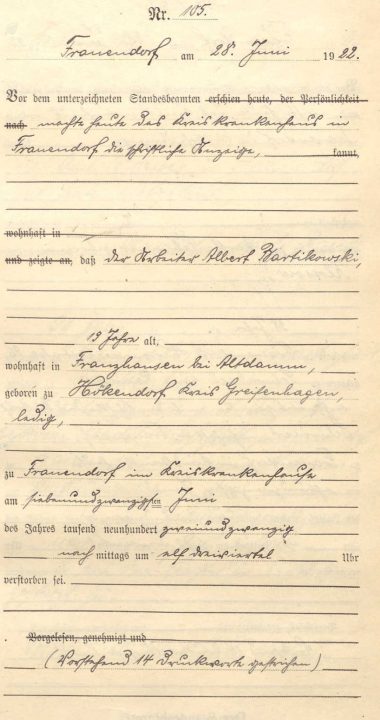 Nr. 105.
Frauendorf am 28. Juni 1922.
Vor dem unterzeichneten Standesbeamten erschien heute, der Persönlichkeit
nach machte heute das Kreiskrankenhaus in
Frauendorf die schriftliche Anzeige, kannt,
wohnhaft in
und zeigte an, daß der Arbeiter Albert Bartikowski,
19 Jahre alt,
wohnhaft in Franzhausen bei Altdamm,
geboren zu Hökendorf Kreis Greifenhagen,
ledig,
zu Frauendorf im Kreiskrankenhause
am siebenundzwanzigsten Juni
des Jahres tausend neunhundert zweiundzwanzig
nach mittags um elf dreiviertel Uhr
verstorben sei.
Vorgelesen, genehmigt und
(Vorstehend 14 Druckworte gestrichen)